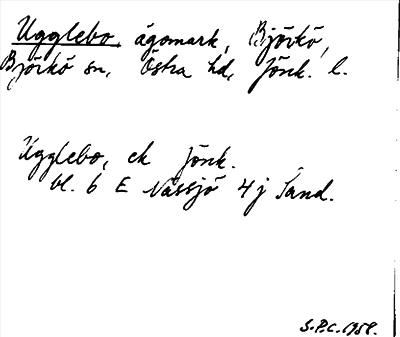 Ugglebo, ägomark, Björkö,
Björkö sn, Östra hd, Jönk. l.
Ugglebo, ek Jönk.
bl. 6 E Nässjö 4 j Sand.
S.P.C. 1958.